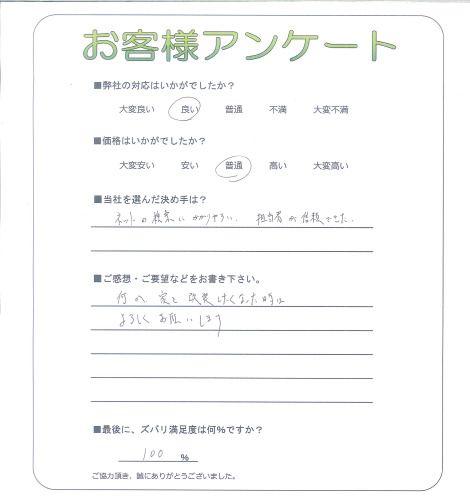 お客様アンケート
■弊社の対応はいかがでしたか?
大変良い 良い 普通 不満 大変不満
■価格はいかがでしたか?
大変安い 安い 普通 高い 大変高い
■当社を選んだ決め手は?
ネットの検索に 担当者が信頼できた.
■ご感想・ご要望などをお書き下さい。
何か 家を 改装したくなった時は
よろしくお願いします
■最後に、ズバリ満足度は何%ですか?
100 %
ご協力頂き、誠にありがとうございました。